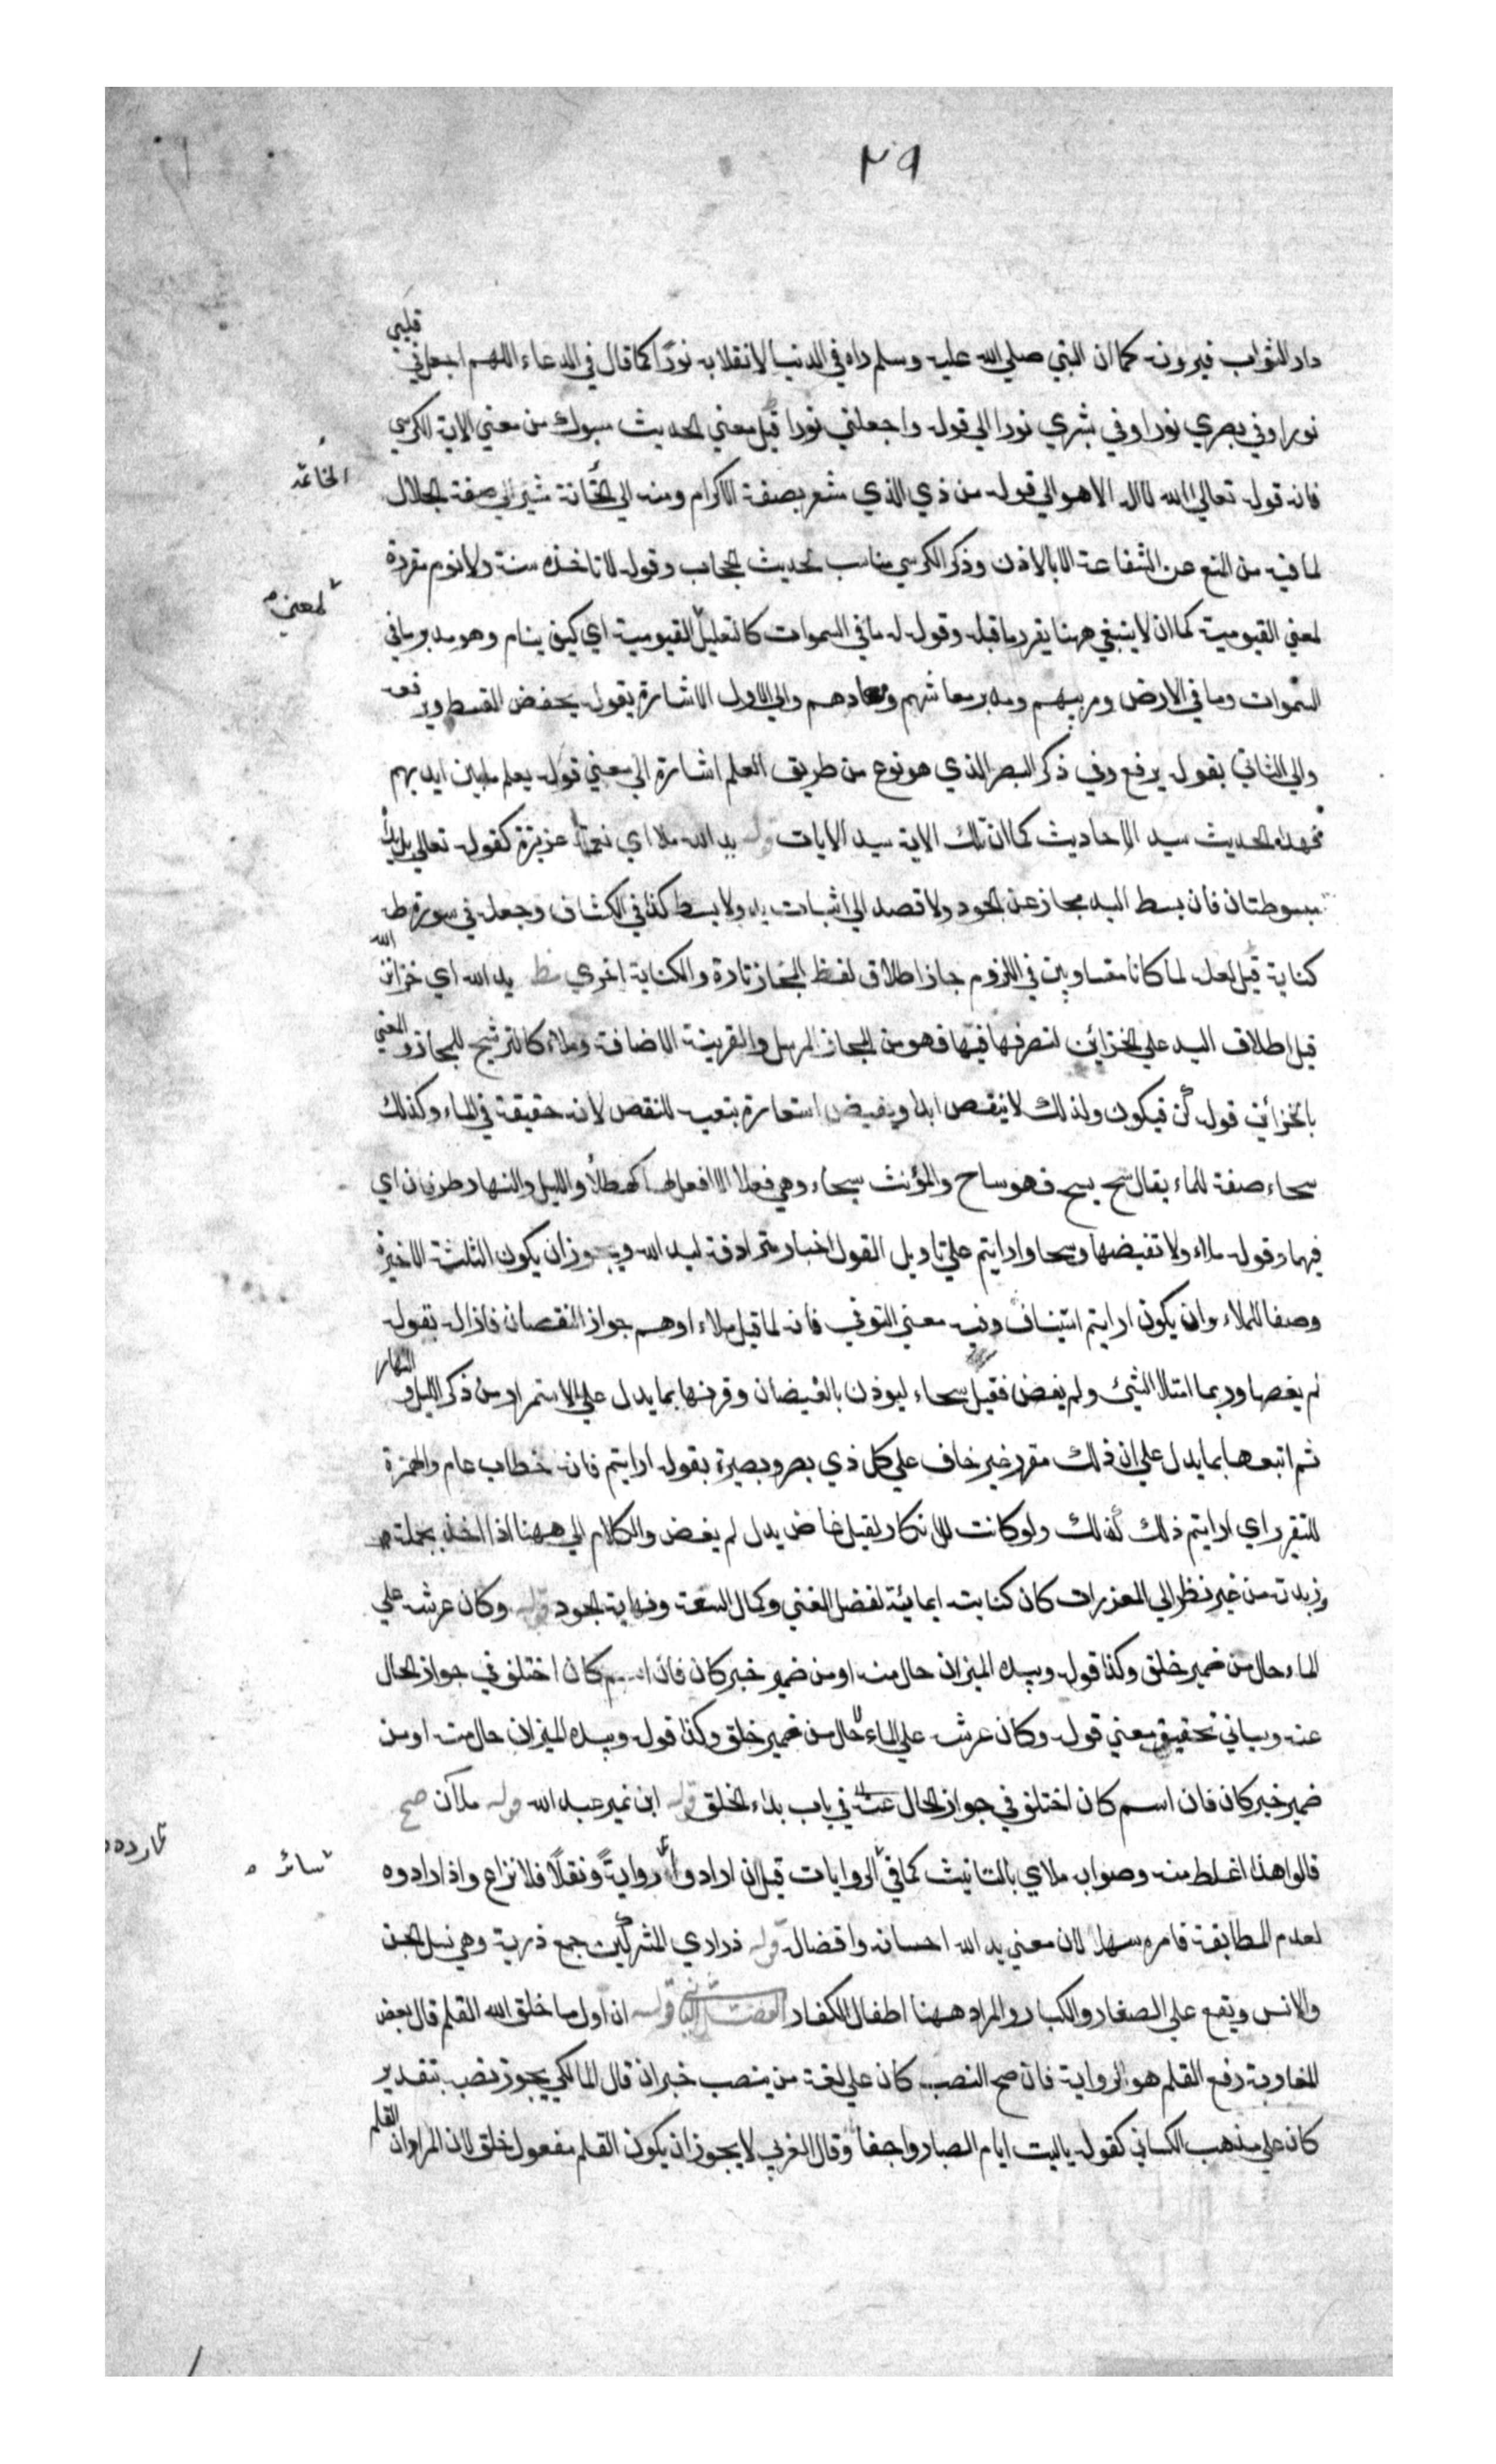 ٢٩
دار الثواب فيرونه كما ان النبي صلي الله عليه وسلم راه في الدنيا لانقلابه نورا كما قال في الدعاء اللهم اجعل في قلبي
نورا وفي بصري نورا وفي بشري نورا الي قوله واجعلني نورا قيل معني الحديث مسبوك من معني الاية الكرسي
فانه قوله تعالي الله لااله الا هو الي قوله من ذي الذي مشعر بصفة الاكرام ومنه الي الخاتمة مشير الي صفة الجلال
الخاتمة
لما فيه من المنع عن الشفاعة الا بالاذن وذكر الكرسي مناسب لحديث الحجاب وقوله لا تاخذه سنة ولا نوم مقررة
لمعني القيومية كما ان لا ينبغي ههنا يقرر ما قبله وقوله له ما في السموات كالتعليل القيومية اي كيف ينام وهو مدبر ما في
لمعني
السموات وما في الارض ومربيهم ومدبر معاشهم ومعادهم والي الاول الاشارة بقوله يخفض القسط ويرفعه
والي الثاني بقوله يرفع وفي ذكر البصر الذي هو نوع من طريق العلم اشارة الي معني قوله يعلم ما بين ايديهم
فهذا الحديث سيد الاحاديث كما ان تلك الاية سيد الايات قوله يد الله ملا اي نعمة عزيزة كقوله تعالي بل يداه
مبسوطتان فان بسط اليد مجاز عن الجود ولا قصد الي اثبات يد ولا بسط كذا في الكشاف وجعله في سورة طه
كناية قيل لعله لما كانا متساويين في اللزوم جاز اطلاق لفظ المجاز تارة والكناية اخري مظ يد الله اي خزائن الله
قيل اطلاق اليد علي الخزائن لتصرفها فيها فهو من المجاز المرسل والقرينة الاضافة وملاء كالترشيح للمجاز والمعني
بالخزائن قوله كن فيكون ولذلك لا ينقص ابدا ويغيض استعارة بتعيب للنقص لانه حقيقة في الماء وكذلك
سحاء صفة للماء يقال سح يسح فهو ساح والمؤنث سحاء وهي فعلا لا افعل لها كهطلاء والليل والنهار ظرفان اي
فيهما وقوله ملاء ولا تغيضها وسحا وارايتم علي تاويل القول اخبار مترادفة ليد الله ويجوز ان يكون الثلثة الاخيرة
وصفا للملاء وان يكون ارايتم استينافا وفيه معني الترقي فانه لما قيل ملاء اوهم جواز النقصان فازاله بقوله
لم يغصها وربما امتلا الشئ ولم يغض فقيل سحاء ليوذن بالغيضان وقرنها بما يدل علي الاستمرار من ذكر الليل والنهار
ثم اتبعها بما يدل علي ان ذلك مقرر غير خاف علي كل ذي بصر وبصيرة بقوله ارايتم فان خطاب عام والهمزة
للتقرير اي ارايتم ذلك كذلك ولو كانت للانكار لقيل غاض يدل لم يغض والكلام الي ههنا اذا اخذ بجملته
وزبدته من غير نظر الي المفردات كان كنايته ايمائية لفضل الغني وكمال السعة ونهاية الجود قوله وكان عرشه علي
الماء حال من ضمير خلق وكذا قوله وبيده الميزان حال منه او من ضمير خبر كان فان اسم كان اختلف في جواز الحال
عنه وسياتي تحقيق معني قوله وكان عرشه علي الماء حال من ضمير خلق وكذا قوله وبيده الميزان حال منه او من
ضمير خبر كان فان اسم كان اختلف في جواز الحال عنه في باب بداء الخلق قوله ابن نمير عبد الله قوله ملآن صح
قالوا هذا غلط منه وصوابه ملاي بالتانيث كما في الروايات قيل ان ارادوا رواية ونقلا فلا نزاع واذا ارادوه
سائر
لعدم المطابقة فامره سهل لان معني يد الله احسانه وافضاله قوله ذراري المشركين جمع ذرية وهي نسل الجن
والانس ويقع علي الصغار والكبار والمراد ههنا اطفال الكفار الفصل الثاني قوله ان اول ما خلق الله القلم قال بعض
المغاربة رفع القلم هو الرواية فان صح النصب كان علي لغة من ينصب خبر ان قال المالكي يجوز نصبه بتقدير
كان علي مذهب الكسائي كقوله ياليت ايام الصبا رواجعا وقال المغربي لا يجوز ان يكون القلم مفعول خلق لان المراد ان القلم